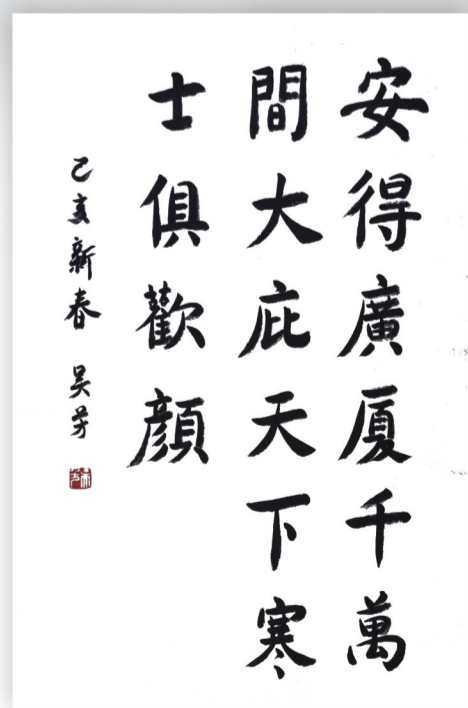 安得廣厦千萬
間大庇天下寒
士俱歡顔
己亥新春 吴芳